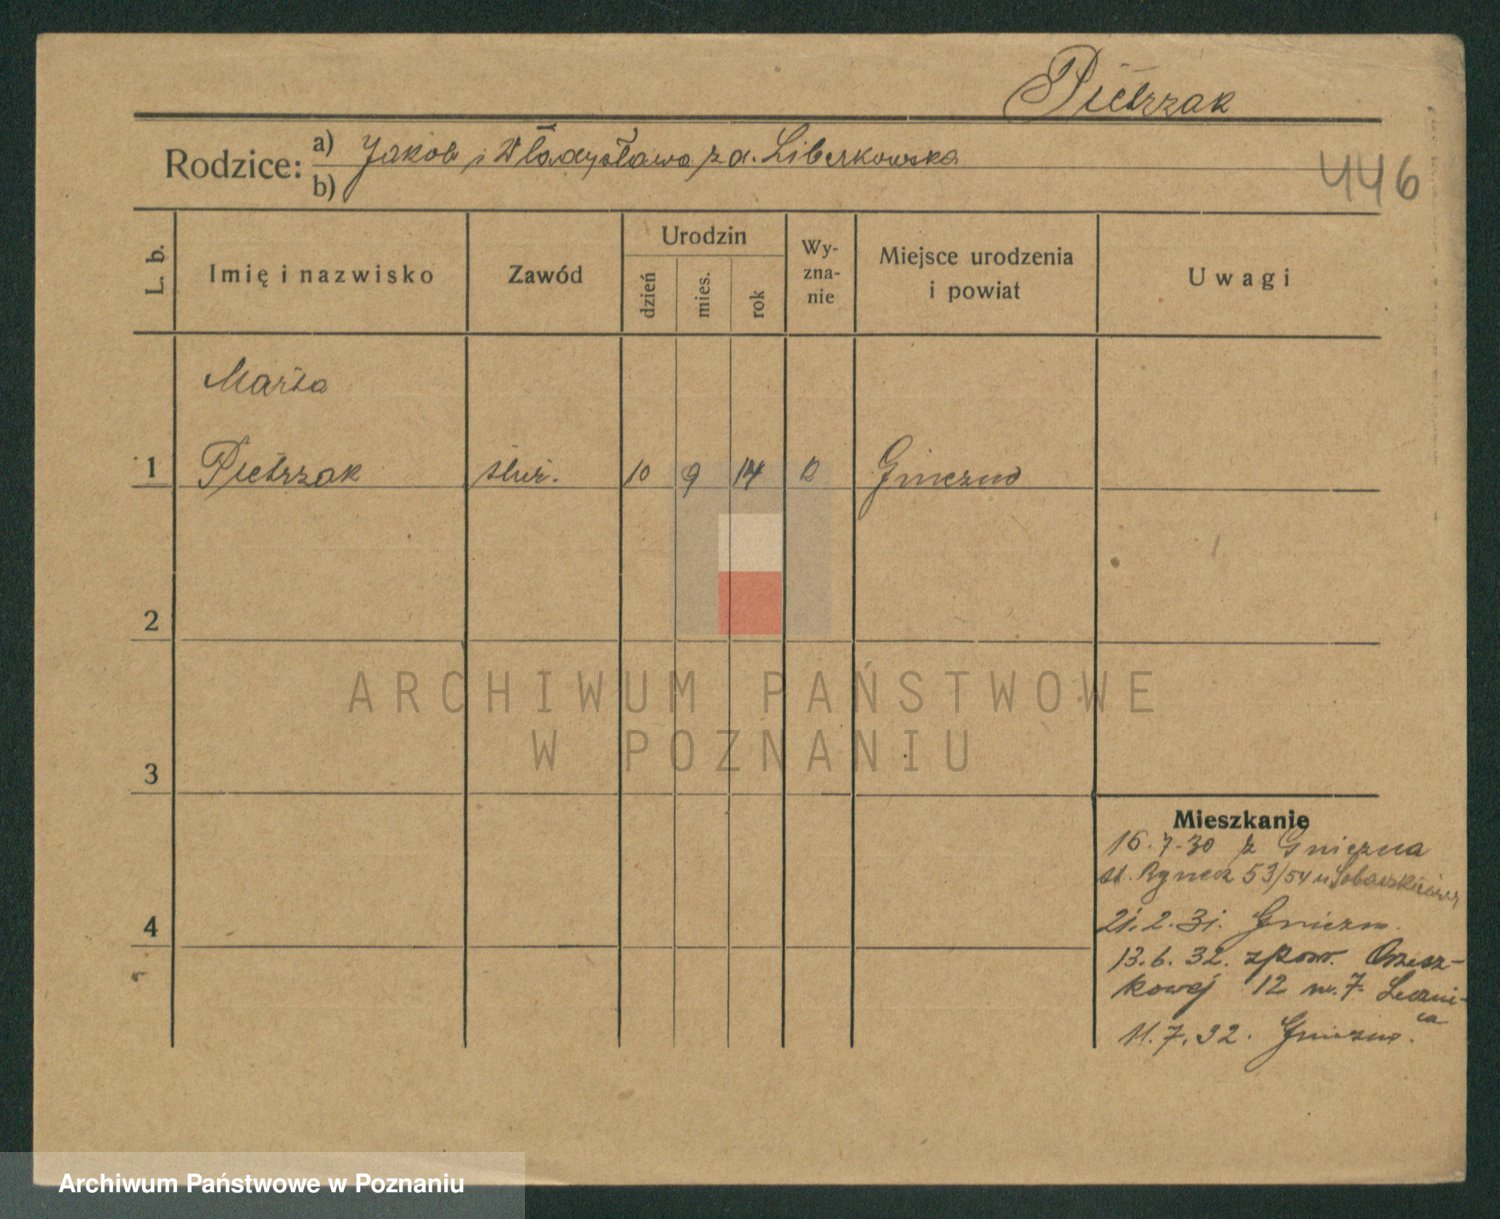 Pietrzak
Rodzice: a) Jakób i Władysława z d. Liberkowska
b)
446
L. b.
Imię i nazwisko
Zawód
Urodzin
dzień
mies.
rok
Wy-
zna-
nie
Miejsce urodzenia
i powiat
Uwagi
Maria
1 Pietrzak służ. 10 9 14 Gniezno
2
ARCHIWUM PAŃSTWOWE
W POZNANIU
3
Mieszkanie
15.7.30 z Gniezna
st. Rynek 53/54 u
4
21.2.31. Gniezno
13.6.32. z pow. Orzesz-
kowej 12 m. 7. Leczni-
ca
11.7.32. Gniezno.
Archiwum Państwowe w Poznaniu